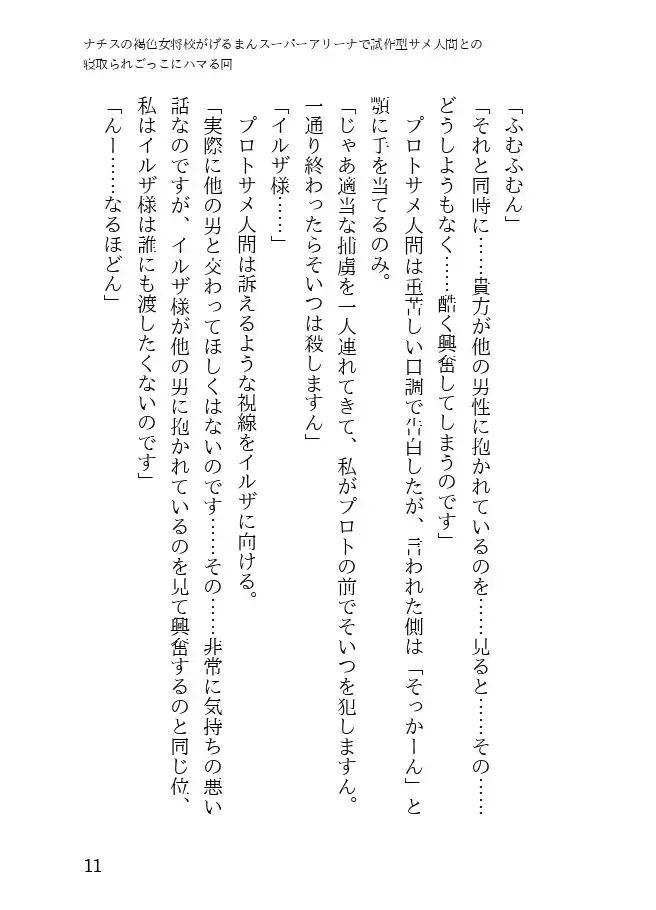 ナチスの褐色女将校がげるまんスーパーアリーナで試作型サメ人間との
寝取られごっこにハマる回
「ふむふむん」
「それと同時に……貴方が他の男性に抱かれているのを……見ると……その……
どうしようもなく……酷く興奮してしまうのです」
　プロトサメ人間は重苦しい口調で告白したが、言われた側は「そっかーん」と
顎に手を当てるのみ。
「じゃあ適当な捕虜を一人連れてきて、私がプロトの前でそいつを犯しますん。
一通り終わったらそいつは殺しますん」
「イルザ様……」
　プロトサメ人間は訴えるような視線をイルザに向ける。
「実際に他の男と交わってほしくはないのです……その……非常に気持ちの悪い
話なのですが、イルザ様が他の男に抱かれているのを見て興奮するのと同じ位、
私はイルザ様は誰にも渡したくないのです」
「んー……なるほどん」
11